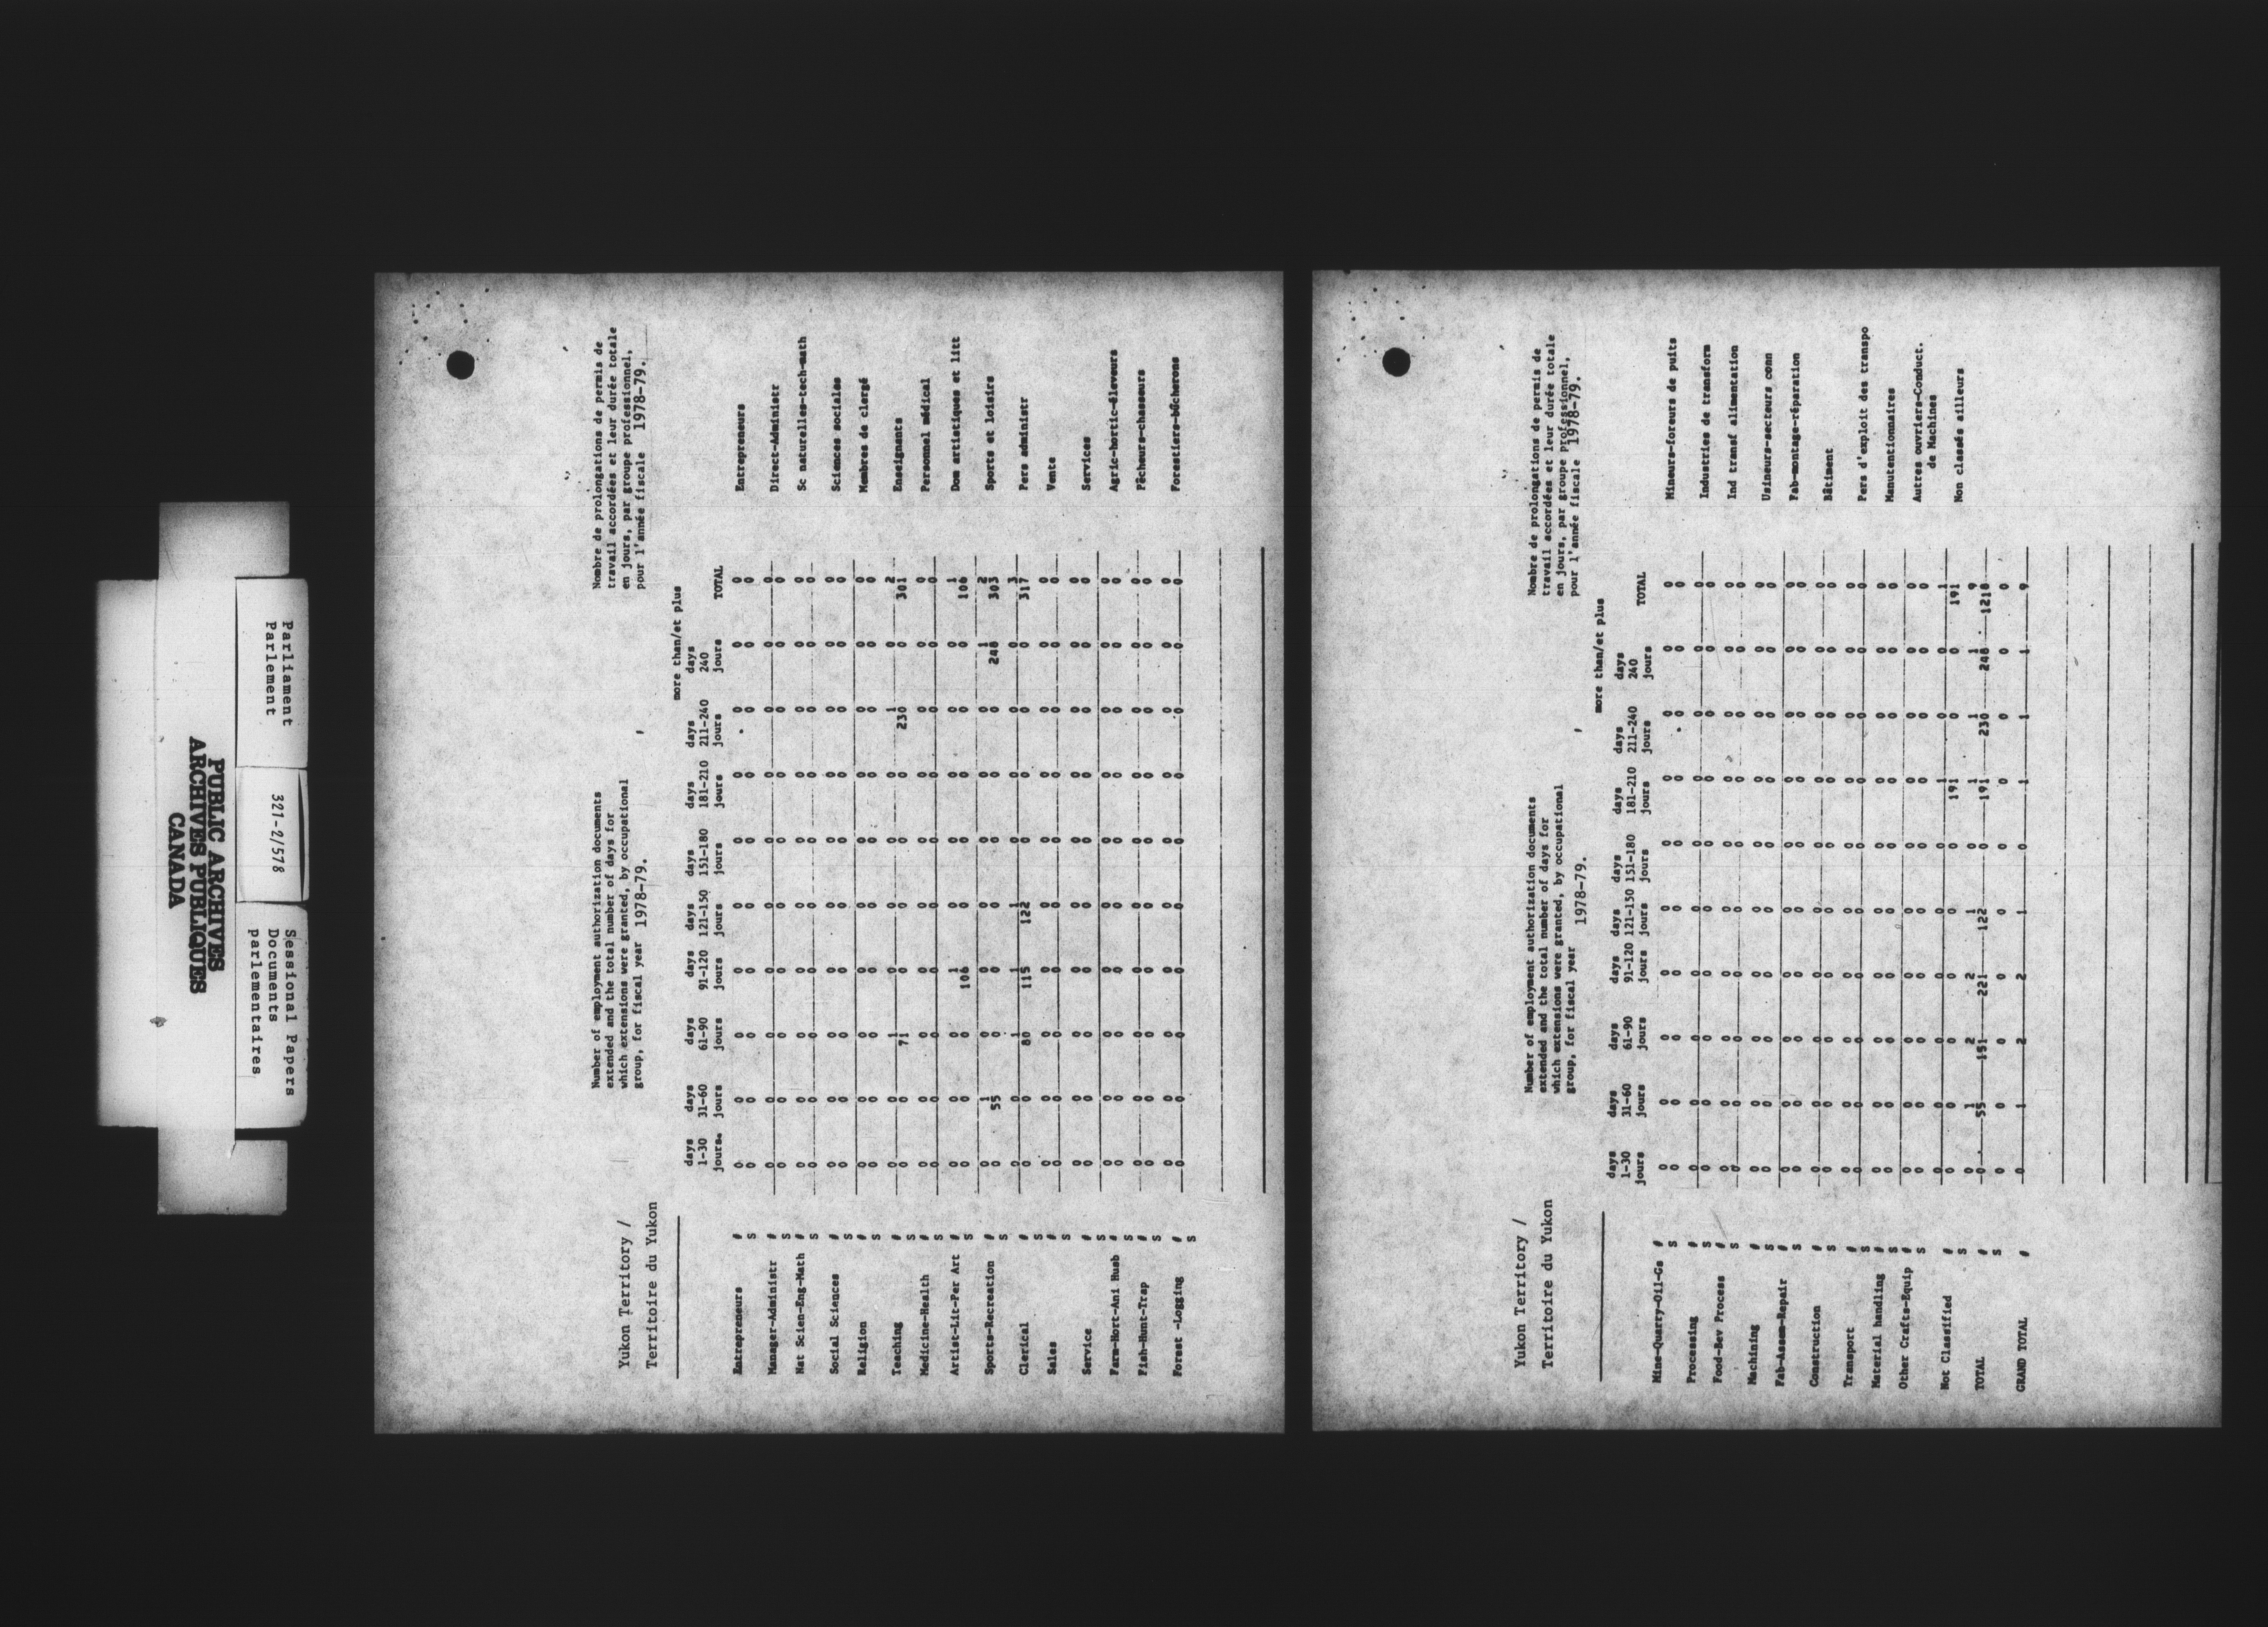 Parliament
Parlement
321-2/578
Sessional Papers
Documents
parlementaires
PUBLIC ARCHIVES
ARCHIVES PUBLIQUES
CANADA
Yukon Territory /
Territoire du Yukon
Number of employment authorization documents
extended and the total number of days for
which extensions were granted, by occupational
group, for fiscal year 1978-79.
Nombre de prolongations de permis de
travail accordées et leur durée totale
en jours, par groupe professionnel,
pour l'année fiscale 1978-79.
more than/et plus
days days days days days days days days days
1-30 31-60 61-90 91-120 121-150 151-180 181-210 211-240 240 TOTAL
jours jours jours jours jours jours jours jours jours
Entrepreneurs # 0 0 0 0 0 0 0 0 0 0 Entrepreneurs
S 0 0 0 0 0 0 0 0 0 0
Manager-Administr # 0 0 0 0 0 0 0 0 0 0 Direct-Administr
S 0 0 0 0 0 0 0 0 0 0
Nat Scien-Eng-Math # 0 0 0 0 0 0 0 0 0 0 Sc naturelles-tech-math
S 0 0 0 0 0 0 0 0 0 0
Social Sciences # 0 0 0 0 0 0 0 0 0 0 Sciences sociales
S 0 0 0 0 0 0 0 0 0 0
Religion # 0 0 0 0 0 0 0 0 0 0 Membres de clergé
S 0 0 0 0 0 0 0 0 0 0
Teaching # 0 0 1 0 0 0 0 1 0 2 Enseignants
S 0 0 71 0 0 0 0 230 0 301
Medicine-Health # 0 0 0 0 0 0 0 0 0 0 Personnel médical
S 0 0 0 0 0 0 0 0 0 0
Artist-Lit-Per Art # 0 0 0 1 0 0 0 0 0 1 Dom artistiques et litt
S 0 0 0 106 0 0 0 0 0 106
Sports-Recreation # 0 1 0 0 0 0 0 0 1 2 Sports et loisirs
S 0 55 0 0 0 0 0 0 248 303
Clerical # 0 0 1 1 1 0 0 0 0 3 Pers administr
S 0 0 80 115 122 0 0 0 0 317
Sales # 0 0 0 0 0 0 0 0 0 0 Vente
S 0 0 0 0 0 0 0 0 0 0
Service # 0 0 0 0 0 0 0 0 0 0 Services
S 0 0 0 0 0 0 0 0 0 0
Farm-Hort-Ani Husb # 0 0 0 0 0 0 0 0 0 0 Agric-hortic-éleveurs
S 0 0 0 0 0 0 0 0 0 0
Fish-Hunt-Trap # 0 0 0 0 0 0 0 0 0 0 Pêcheurs-chasseurs
S 0 0 0 0 0 0 0 0 0 0
Forest -Logging # 0 0 0 0 0 0 0 0 0 0 Forestiers-bûcherons
S 0 0 0 0 0 0 0 0 0 0
Yukon Territory /
Territoire du Yukon
Number of employment authorization documents
extended and the total number of days for
which extensions were granted, by occupational
group, for fiscal year 1978-79.
Nombre de prolongations de permis de
travail accordées et leur durée totale
en jours, par groupe professionnel,
pour l'année fiscale 1978-79.
more than/et plus
days days days days days days days days days
1-30 31-60 61-90 91-120 121-150 151-180 181-210 211-240 240 TOTAL
jours jours jours jours jours jours jours jours jours
Mine-Quarry-Oil-Gs # 0 0 0 0 0 0 0 0 0 0 Mineurs-foreurs de puits
S 0 0 0 0 0 0 0 0 0 0
Processing # 0 0 0 0 0 0 0 0 0 0 Industries de transform
S 0 0 0 0 0 0 0 0 0 0
Food-Bev Process # 0 0 0 0 0 0 0 0 0 0 Ind transf alimentation
S 0 0 0 0 0 0 0 0 0 0
Machining # 0 0 0 0 0 0 0 0 0 0 Usineurs-secteurs conn
S 0 0 0 0 0 0 0 0 0 0
Fab-Assem-Repair # 0 0 0 0 0 0 0 0 0 0 Fab-montage-réparation
S 0 0 0 0 0 0 0 0 0 0
Construction # 0 0 0 0 0 0 0 0 0 0 Bâtiment
S 0 0 0 0 0 0 0 0 0 0
Transport # 0 0 0 0 0 0 0 0 0 0 Pers d'exploit des transpo
S 0 0 0 0 0 0 0 0 0 0
Material handling # 0 0 0 0 0 0 0 0 0 0 Manutentionnaires
S 0 0 0 0 0 0 0 0 0 0
Other Crafts-Equip # 0 0 0 0 0 0 0 0 0 0 Autres ouvriers-Conduct.
S 0 0 0 0 0 0 0 0 0 0 de Machines
Not Classified # 0 0 0 0 0 0 1 0 0 1 Non classés ailleurs
S 0 0 0 0 0 0 191 0 0 191
TOTAL # 0 1 2 2 1 0 1 1 1 9
S 0 55 151 221 122 0 191 230 248 1218
0 0 0 0 0 0 0 0 0 0
GRAND TOTAL # 0 1 2 2 1 0 1 1 1 9